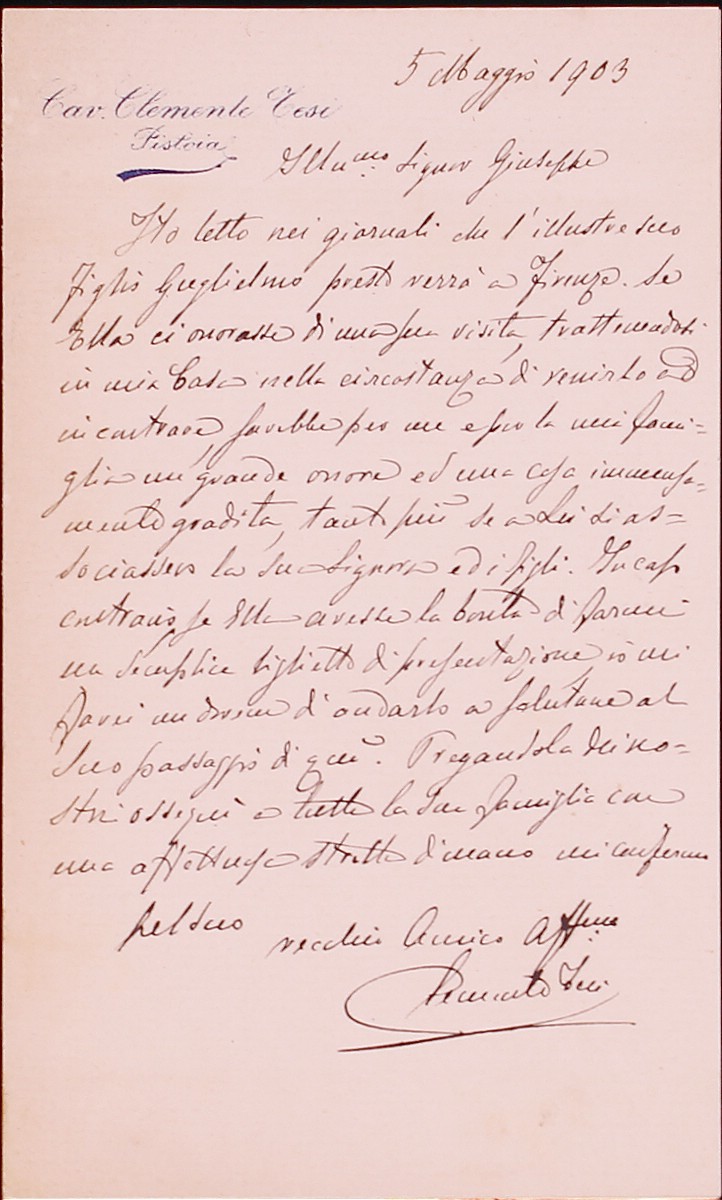 5 Maggio 1903
Cav. Clemente Tesi
Pistoia
Illu.mo Signor Giuseppe
Ho letto nei giornali che l'illustre suo
figlio Guglielmo presto verrà a Firenze. Se
Ella ci onorasse di una sua visita, trattenendosi
in mia Casa nella circostanza di venirlo ad
incontrare, sarebbe per me e per la mia fami=
glia un grande onore ed una cosa immensa=
mente gradita, tanto più se a Lei si as=
sociassero la sua Signora ed i figli. In caso
contrario se Ella avesse la bontà di farmi
un semplice biglietto di presentazione, io mi
farei un dovere di andarlo a salutare al
suo passaggio di qui. Pregandola dei no=
stri ossequi a tutta la sua famiglia con
una affettuosa stretta di mano mi confermo
pel suo
vecchio Amico Aff.mo
Clemente Tesi